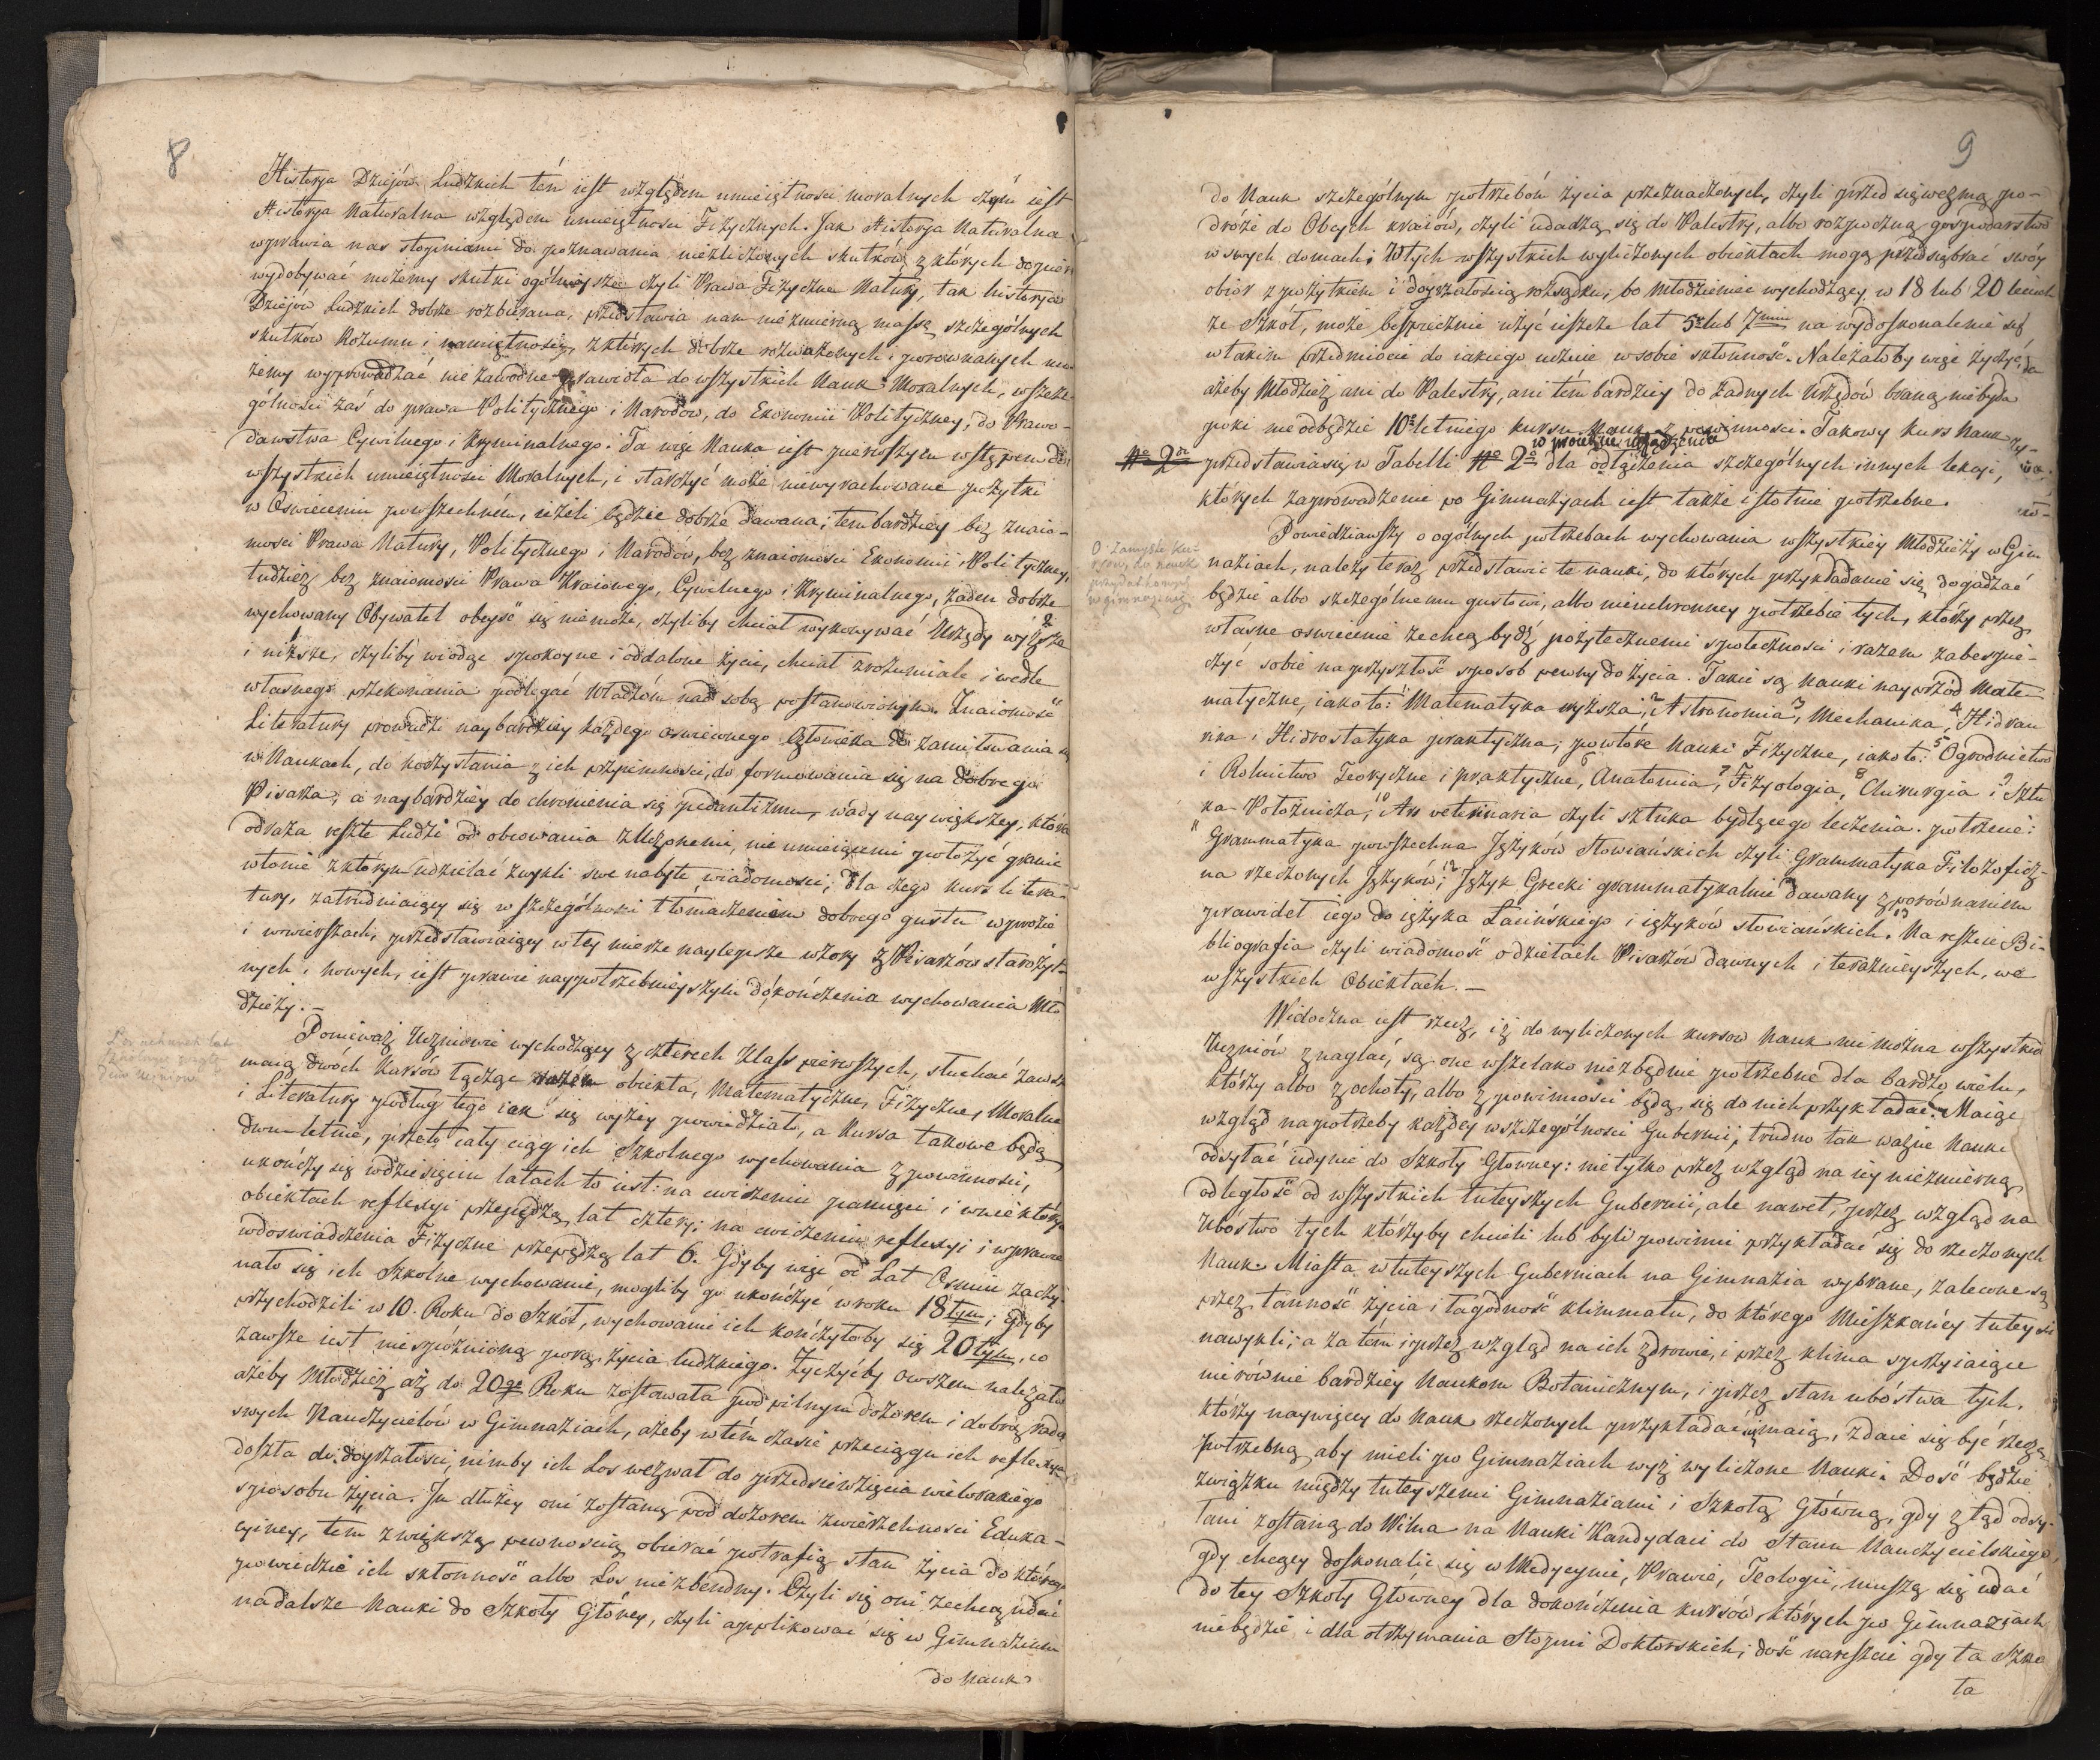 8
Historya Dziejów Ludzkich tém iest względem umieiętnosci moralnych czém iest
Historya Naturalna względem umieiętnosci Fizycznych. Jak Historya Naturalna
wprawia nas stopniami do poznawania niezliczonych skutków z których dopiéro
wydobywać możemy skutki ogólnieysze czyli Prawa Fizyczne Natury, tak historya
Dziejów Ludzkich dobrze rozbierana, przedstawia nam niezmierną massę szczególnych
skutków Rozumu i namiętnosci, z których dobrze rozważonych i porownanych mo-
żemy wyprowadzać niezawodne prawidła do wszystkich Nauk Moralnych, w szcze-
gólnosci zaś do prawa Politycznego i Narodów, do Ekonomii Polityczney, do Prawo-
dawstwa Cywilnego i Kryminalnego. Ta więc Nauka iest pierwszym wstępem do
wszystkich umieiętnosci Moralnych, i starczyć może niewyrachowane pożytki
w Oswieceniu powszechném, ieżeli będzie dobrze dawana; tem bardziey bez znaio-
mosci Prawa Natury, Politycznego i Narodów, bez znaiomosci Ekonomii Polityczney,
tudzież bez znaiomosci Prawa Kraiowego, Cywilnego i Kryminalnego, żaden dobrze
wychowany Obywatel obeyść się niemoże, czyliby chciał wykonywać Urzędy wyższe
i niższe, czyliby wiodąc spokoyne i oddalone życie, chciał zrozumiale i wedle
własnego przekonania podlegać Władzóm nad sobą postanowionym. Znaiomość
Literatury prowadzi naybardziey każdego oswieconego Człowieka do zamiłowania
w Naukach, do korzystania z ich przyiemnosci, do formowania się na dobrego
Pisarza, a naybardziey do chronienia się pedantizmu, wady naywiększey, która
odraża resztę Ludzi od obcowania z Uczonemi, nie umieiącemi położyć granic
w tonie z którym udzielać zwykli swe nabyte wiadomosci; dla czego kurs litera-
tury, zatrudniaiący się w szczególnosci tłomaczeniem dobrego gustu w prozie
i w wierszach, przedstawiaiący w tey mierze naylepsze wzory z Pisarzów starożyt-
nych i nowych, iest prawie naypotrzebnieyszym dókończenia wychowania Mło
dzieży. —
Ponieważ Uczniowie wychodzący z czterech Klass pierwszych, słuchać zawsze
maią dwóch Kursów łącząc razem obiekta, Matematyczne, Fizyczne, Moralne
i Literatury podług tego iak się wyżey powiedziało, a Kursa takowe będą
dwu-letnie, przeto cały ciąg ich Szkolnego wychowania z powinnosci,
ukończy się w dziesięciu latach to iest: na cwiczeniu pamięci i w niektórych
obiektach reflexyi przepędzą lat cztery; na cwiczeniu reflexyi i wprawie
w doswiadczenia Fizyczne przepędzą lat 6. Gdyby więc od Lat Osmiu zaczy-
nało się ich Szkolne wychowanie, mogliby go ukończyć w roku 18tym; gdyby
przychodzili w 10. Roku do Szkół, wychowanie ich kończyłoby się 20tym, co
zawsze iest niespóźnioną porą życia ludzkiego. Życzyćby owszem należało
ażeby Młodzież aż do 20go Roku zostawała pod pilnym dozorem i dobrą radą
swych Nauczycielów w Gimnaziach, ażeby w tém czasie przeciągu ich reflexya
doszła do doyrzałosci, nimby ich Los wezwał do przedsiewzięcia wielorakiego
sposobu życia. Im dłużey oni zostaną pod dozorem zwierzchnosci Eduka-
cyiney, tem z większą pewnoscią obierać potrafią stan życia do którego
powiedzie ich skłonność albo Los niezbendny. Czyli się oni zechcą udać
na dalsze Nauki do Szkoły Główney, czyli applikować się w Gimnazium
do Nauk
9
do Nauk szczególnym potrzebóm życia przeznaczonych, czyli przed się wezmą po-
dróże do Obcych kraiów, czyli udadzą się do Palestry, albo rozpoczną gospodarstwo
w swych domach; W tych wszystkich wyliczonych obiektach mogą przedsiębrać swóy
obiór z pożytkiem i doyrzałoscią rozsądku; bo Młodzieniec wychodzący w 18 lub 20 leciech
ze Szkół, może bespiecznie użyć ieszcze lat 5c lub 7miu na wydoskonalenie się
w takim przedmiocie do iakiego uczuie w sobie skłonność. Należałoby więc życzyć,
ażeby Młodzież ani do Palestry, ani tém bardziey do żadnych Urzędów braną niebyła
póki nie odbędzie 10o letniego kursu Nauk z powinnosci. Takowy kurs Nauk
w proiekcie urządzenia
No 2o przedstawia się w Tabelli No 2o dla odłączenia szczególnych innych lekcyi,
których zaprowadzenie po Gimnazyach iest także istotnie potrzebne.
Powiedziawszy o ogólnych potrzebach wychowania wszystkiey Młodzieży w Gim
naziach, należy teraz przedstawić te nauki, do których przykładanie się dogadzać
będzie albo szczególnemu gustowi, albo nieuchronney potrzebie tych, którzy przez
własne oswiecenie zechcą bydź pożytecznemi społecznosci i razem zabespie-
czyć sobie na przyszłość sposob pewny do życia. Takie są Nauki nayprzód Mate-
matyczne, iako to: 1 Matematyka wyższa; 2 Astronomia, 3 Mechanika, 4 Hidrau
lika i Hidrostatyka praktyczna; powtóre Nauki Fizyczne, iako to: 5 Ogrodnictwo
i Rolnictwo Teoryczne i praktyczne, 6 Anatomia, 7 Fizyologia, 8 Chirurgia i 9 Sztu
ka Położnicza, 10 Ars veterinaria czyli sztuka bydlęcego leczenia. potrzecie:
11 Grammatyka powszechna Języków Słowiańskich czyli Grammatyka Filozoficz-
na rzeczonych Języków; 12 Język Grecki grammatykalnie dawany z porównaniem
prawideł iego do ięzyka Łacińskiego i ięzyków słowiańskich. 13 Na reszcie Bi-
bliografia czyli wiadomość o dziełach Pisarzów dawnych i teraznieyszych, we
wszystkich Obiektach. —
Widoczna iest rzecz, iż do wyliczonych kursow Nauk nie można wszystkich
Uczniów znaglać, są one wszelako niezbędnie potrzebne dla bardzo wielu,
którzy albo z ochoty, albo z powinnosci będą się do nich przykładać. Maiąc
wzgląd na potrzeby każdey w szczególnosci Gubernii, trudno tak ważne Nauki
odsyłać iedynie do Szkoły Główney: nietylko przez wzgląd na iey niezmierną
odległość od wszystkich tuteyszych Gubernii, ale nawet, przez wzgląd na
Ubóstwo tych którzyby chcieli lub byli powinni przykładać się do rzeczonych
Nauk. Miasta w tuteyszych Guberniach na Gimnazia wybrane, zalecone są
przez taniość życia i łagodność klimmatu, do którego Mieszkańcy tuteysi
nawykli; a za tém i przez wzgląd na ich zdrowie, i przez klima sprzyiaiące
nierównie bardziey Naukom Botanicznym, i przez stan ubóstwa tych,
którzy naywięcey do Nauk rzeczonych przykładać się maią, zdaie się być rzeczą
potrzebną aby mieli po Gimnaziach wyż wyliczone Nauki. Dość będzie
związku między tuteyszemi Gimnaziami i Szkołą Główną, gdy z tąd odsy-
łani zostaną do Wilna na Nauki Kandydaci do Stanu Nauczycielskiego,
gdy chcący doskonalić się w Medycynie, Prawie, Teologii, muszą się udać
do tey Szkoły Główney dla dokończenia kursów, których po Gimnazjach
niebędzie i dla otrzymania Stopni Doktorskich; dość nareszcie gdy ta Szko
ła